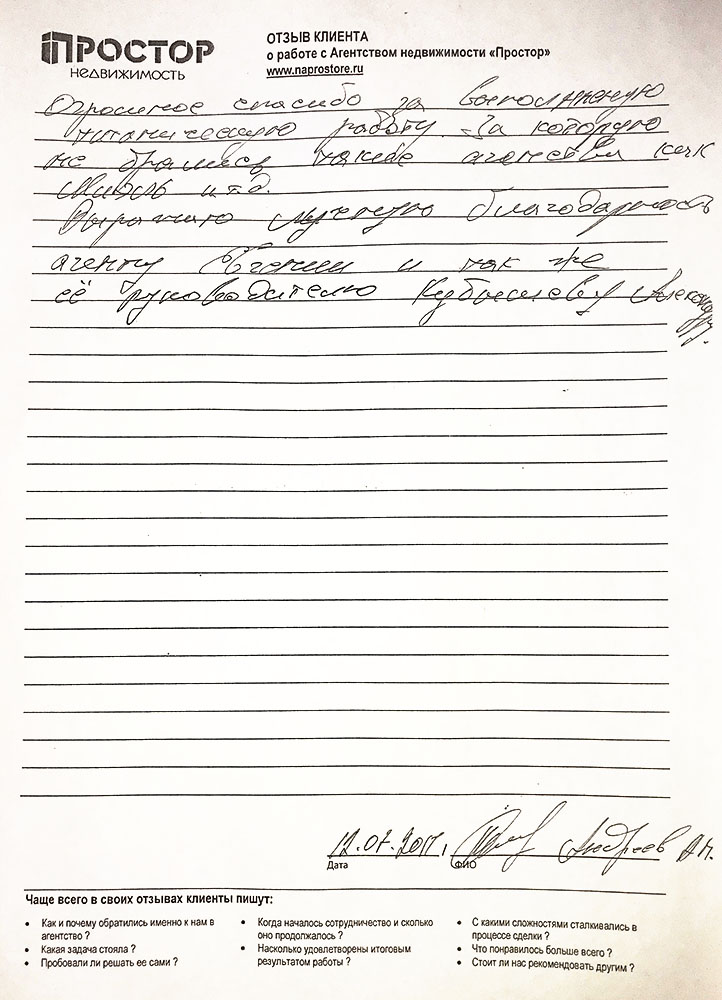 ПРОСТОР
НЕДВИЖИМОСТЬ
ОТЗЫВ КЛИЕНТА
о работе с Агентством недвижимости «Простор»
www.naprostore.ru
Огромное спасибо за выполненную
титаническую работу. За которую
не брались такие агенства как
Миэль и т.д.
Выражаю личную благодарность
агенту Евгении и так же
её руководителю Кубышеву Александру.
12.07.2017, Андреев А.Н.
Дата ФИО
Чаще всего в своих отзывах клиенты пишут:
• Как и почему обратились именно к нам в агентство ?
• Какая задача стояла ?
• Пробовали ли решать ее сами ?
• Когда началось сотрудничество и сколько оно продолжалось ?
• Насколько удовлетворены итоговым результатом работы ?
• С какими сложностями сталкивались в процессе сделки ?
• Что понравилось больше всего ?
• Стоит ли нас рекомендовать другим ?